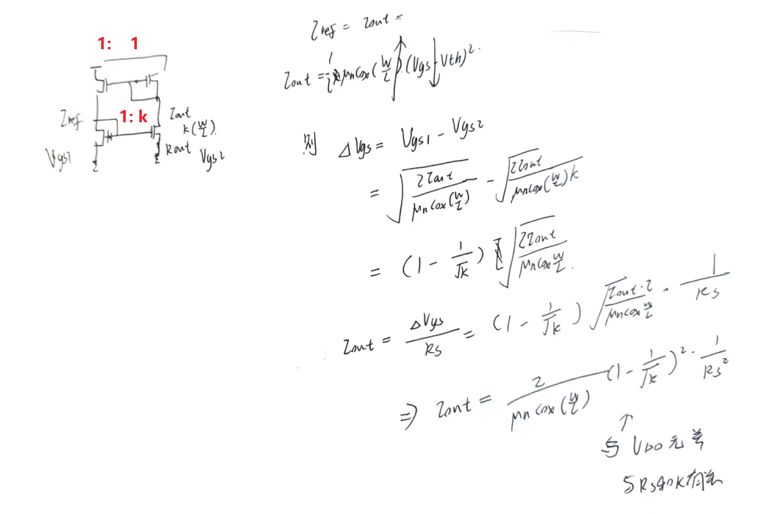 1: 1
1: k
Iref
Iout
k(W/L)
Rout
Vgs1
Vgs2
Iref = Iout =
Iout = 1/2 μnCox(W/L)(Vgs-Vth)².
则 ΔVgs = Vgs1 - Vgs2
= √(2Iout/(μnCox(W/L))) - √(2Iout/(μnCox(W/L)k))
= (1 - 1/√k) √(2Iout/(μnCox W/L)).
Iout = ΔVgs/Rs = (1 - 1/√k) √(Iout·2/(μnCox W/L)) · 1/Rs
⇒ Iout = 2/(μnCox(W/L)) (1 - 1/√k)² · 1/Rs²
↑
与VDD无关
与Rs和k有关